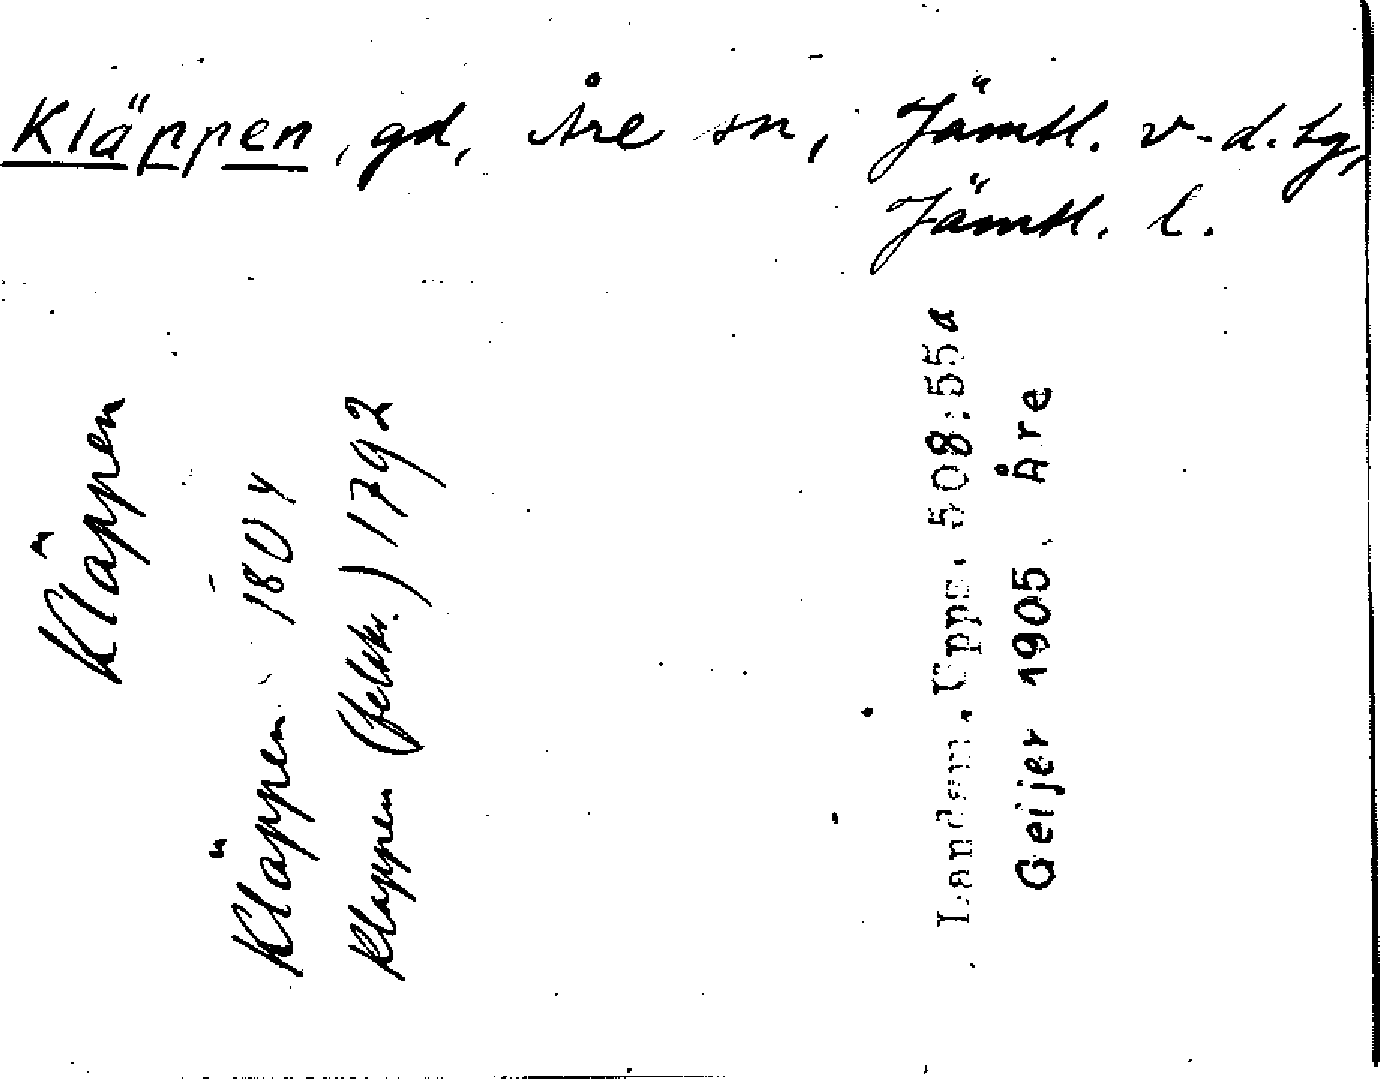 Kläppen, gd, Åre sn, Jämtl. v. d. tg,
Jämtl. l.
Kläppen
Kläppen 1804
Klappen (felskr.) 1792
Landsm. Upps. 508:55a
Geijer 1905. Åre